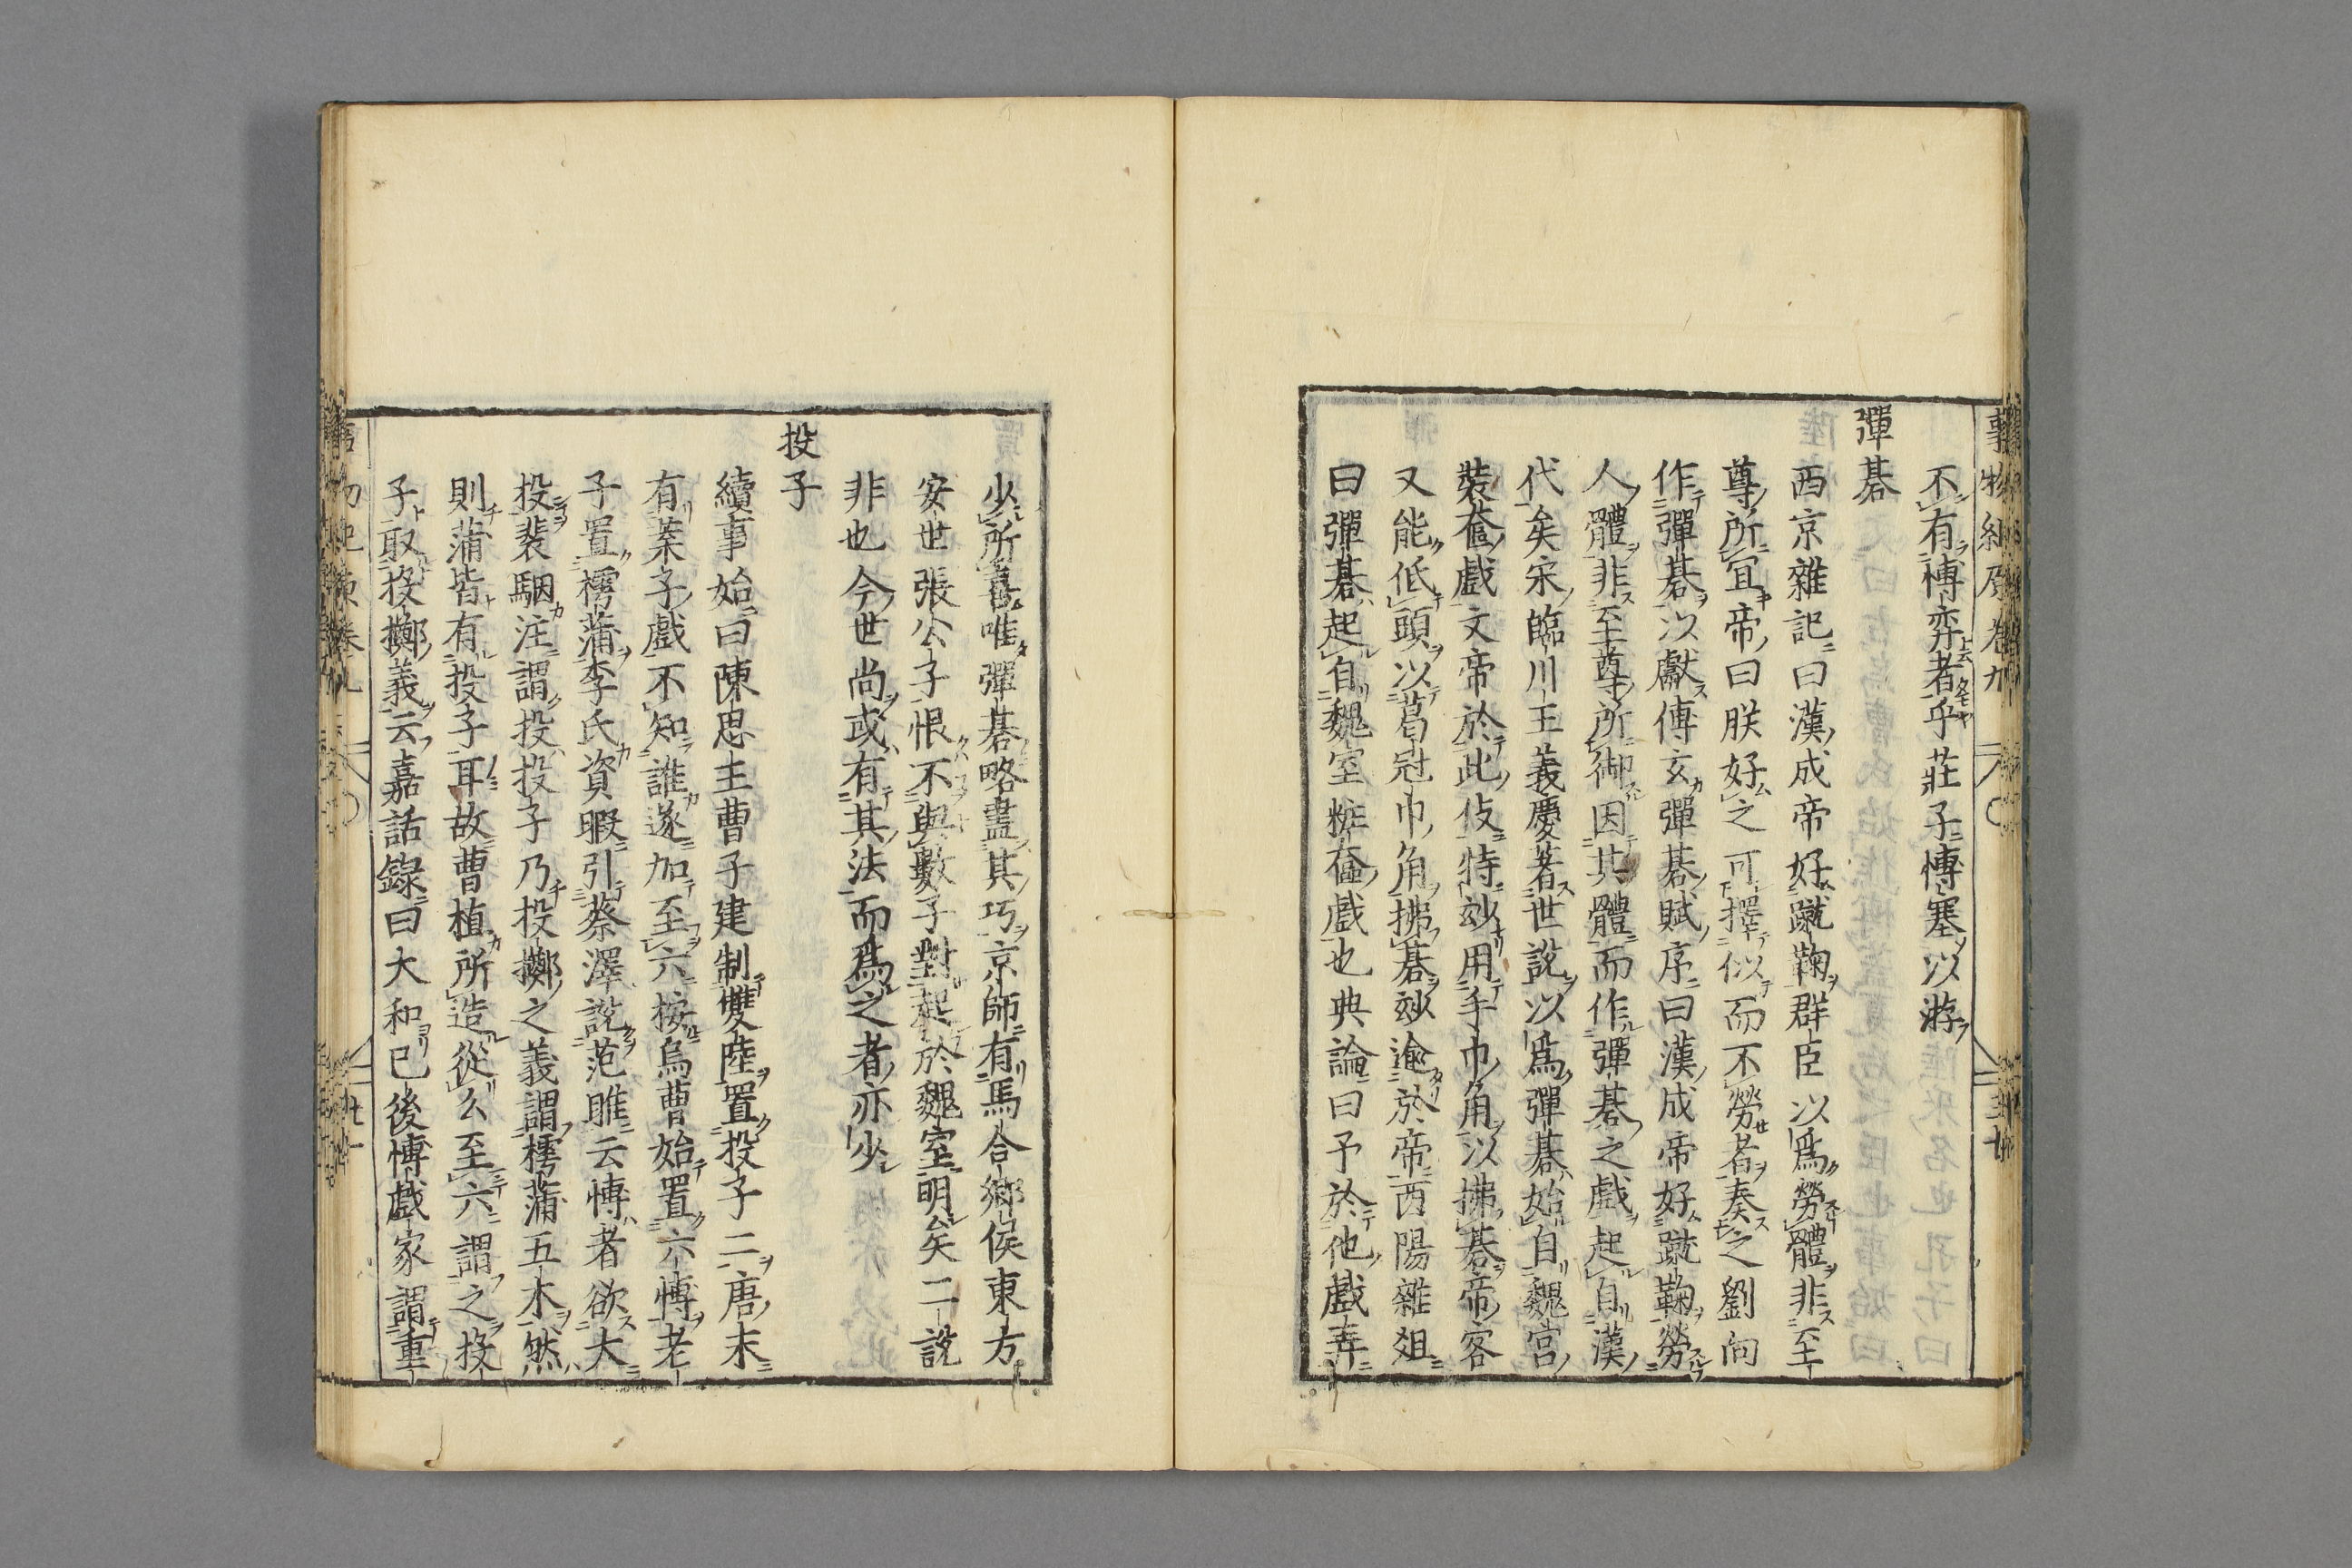 不有博弈者乎莊子博塞以游
彈碁
西京雜記曰漢成帝好蹴鞠群臣以爲勞體非至
尊所宜帝曰朕好之可擇似而不勞者奏之劉向
作彈碁以獻傅玄彈碁賦序曰漢成帝好蹴鞠勞
人體非至尊所御因其體而作彈碁之戲起自漢
代矣宋臨川王義慶著世說以爲彈碁始自魏宮
裝奩戲文帝於此伎特玅用手巾角以拂碁帝客
又能低頭以葛冠巾角拂碁玅逾於帝酉陽雜俎
曰彈碁起自魏室粧奩戲也典論曰予於他戲弄
少所喜唯彈碁略盡其巧京師有馬合鄉侯東方
安世張公子恨不與數子對起於魏室明矣二說
非也今世尚或有其法而爲之者亦少
投子
續事始曰陳思王曹子建制雙陸置投子二唐末
有葉子戲不知誰遂加至六按烏曹始置六博老
子置樗蒲李氏資暇引蔡澤說范雎云博者欲大
投裴駰注謂投投子乃投擲之義謂樗蒲五木然
則蒲皆有投子耳故曹植所造從么至六謂之投
子取投擲義云嘉話錄曰大和已後博戲家謂重